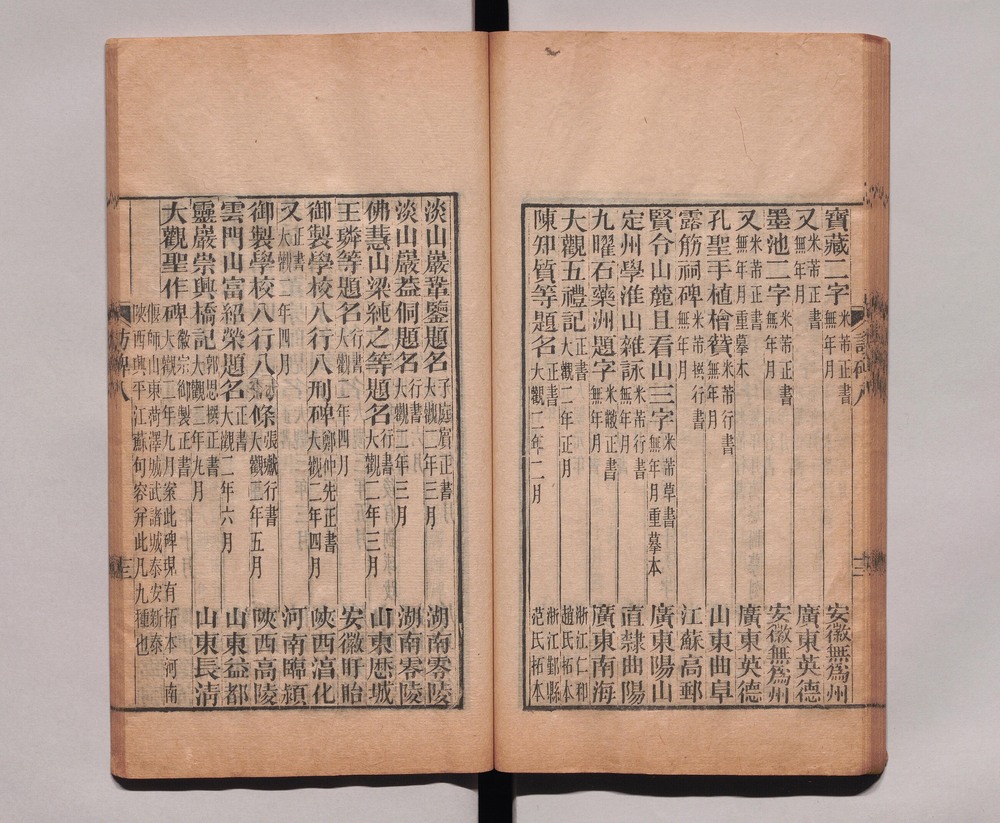 寶藏二字 米芾正書 無年月 安徽無為州
又 米芾正書 無年月 廣東英德
墨池二字 米芾正書 無年月 安徽無為州
又 米芾正書 無年月重摹本 廣東英德
孔聖手植檜贊 米芾行書 無年月 山東曲阜
露筋祠碑 米芾行書 無年月 江蘇高郵
賢令山麓且看山三字 米芾草書 無年月重摹本 廣東陽山
定州學淮山雜詠 米芾行書 無年月 直隸曲陽
九曜石藥洲題字 米黻正書 無年月 廣東南海
大觀五禮記 大觀二年正月 浙江仁和 趙氏拓本
陳知質等題名 大觀二年二月 浙江鄞縣 范氏拓本
淡山巖鞏鑒題名 子庭賔正書 大觀二年三月 湖南零陵
淡山巖益侗題名 行書 大觀二年三月 湖南零陵
佛慧山梁純之等題名 行書 大觀二年三月 山東歷城
王璘等題名 行書 大觀二年四月 安徽盱眙
御製學校八行八刑碑 鄭仲先正書 大觀二年四月 陝西淳化
又 正書 大觀二年四月 河南臨潁
御製學校八行八 條 張 行書 大觀 年五月 陝西高陵
雲門山富紹榮題名 正書 大觀二年六月 山東益都
靈巖崇興橋記 郭思撰正書 大觀二年九月 山東長清
大觀聖作碑 徽宗御製正書 大觀二年九月案此碑現有拓本河南
偃師山東菏澤城武諸城泰安新泰
陝西興平江蘇句容幷此凡九種也
訪碑八 三